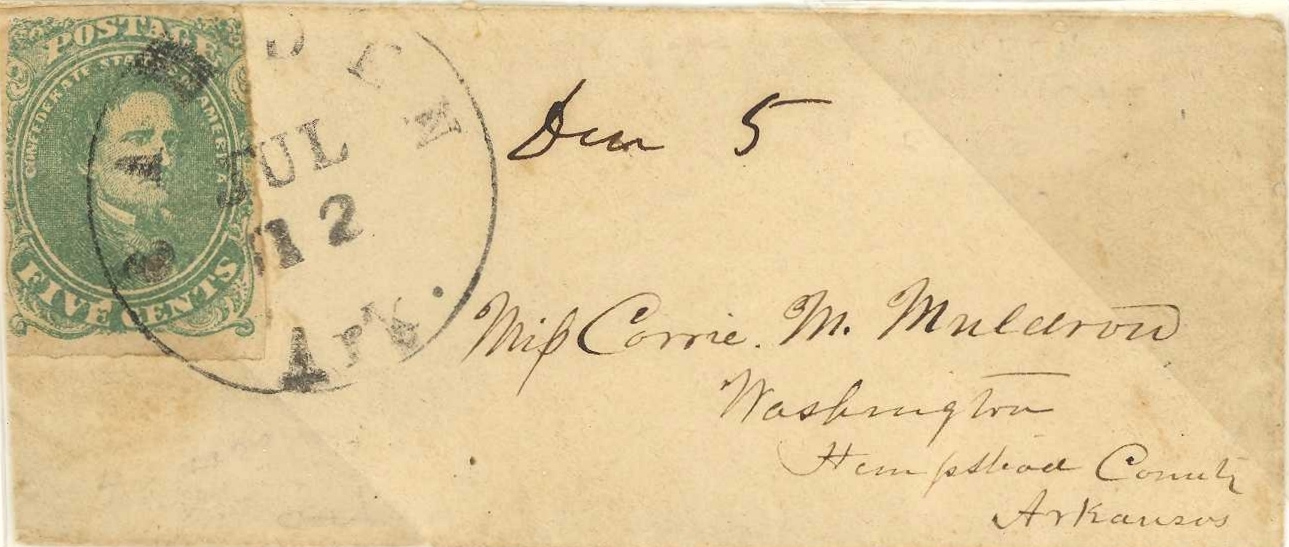 POSTAGE
CONFEDERATE STATES OF AMERICA
FIVE CENTS
CAMDEN
JUL
12
Ark.
Due 5
Miſs Corrie. M. Muldrow
Washington
Hempstead County
Arkansas